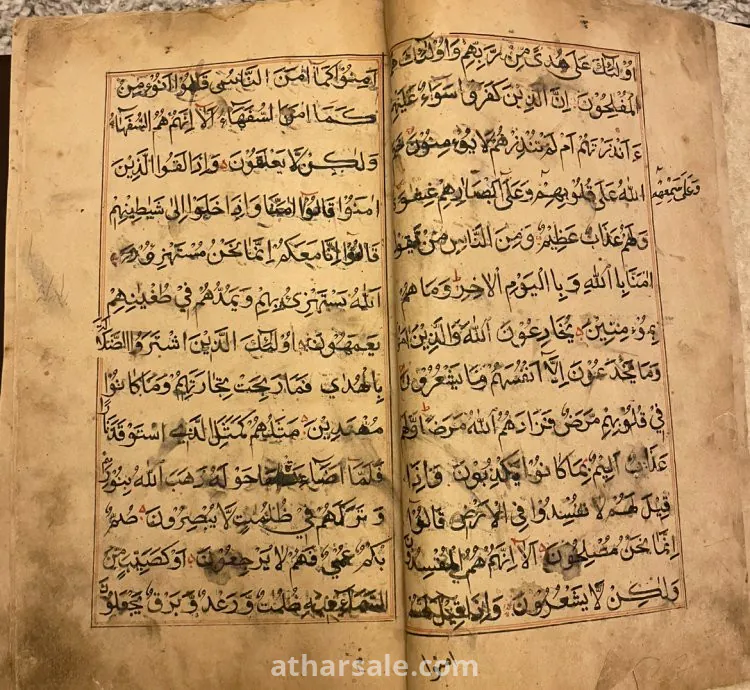 اُولٰٓئِكَ عَلٰى هُدًى مِنْ رَبِّهِمْ وَاُولٰٓئِكَ
الْمُفْلِحُونَ اِنَّ الَّذِينَ كَفَرُوا سَوَاءٌ عَلَيْهِمْ
ءَاَنْذَرْتَهُمْ اَمْ لَمْ تُنْذِرْهُمْ لَا يُؤْمِنُونَ
اللهُ عَلٰى قُلُوبِهِمْ وَعَلٰى اَبْصَارِهِمْ
وَعَلٰى سَمْعِهِمْ
وَلَهُمْ عَذَابٌ عَظِيمٌ وَمِنَ النَّاسِ مَنْ يَقُولُ
اٰمَنَّا بِاللهِ وَبِالْيَوْمِ الْاٰخِرِ وَمَا هُمْ
بِمُؤْمِنِينَ يُخَادِعُونَ اللهَ وَالَّذِينَ
وَمَا يَخْدَعُونَ اِلَّا اَنْفُسَهُمْ وَمَا يَشْعُرُونَ
فِي قُلُوبِهِمْ مَرَضٌ فَزَادَهُمُ اللهُ مَرَضًا وَلَهُمْ
عَذَابٌ اَلِيمٌ بِمَا كَانُوا يَكْذِبُونَ وَاِذَا
قِيلَ لَهُمْ لَا تُفْسِدُوا فِي الْاَرْضِ قَالُوا
اِنَّمَا نَحْنُ مُصْلِحُونَ اَلَا اِنَّهُمْ هُمُ
وَلٰكِنْ لَا يَشْعُرُونَ وَاِذَا قِيلَ لَهُمْ
اٰمنوا
اٰمِنُوا كَمَا اٰمَنَ النَّاسُ قَالُوا اَنُؤْمِنُ
كَمَا اٰمَنَ السُّفَهَاءُ اَلَا اِنَّهُمْ هُمُ السُّفَهَاءُ
وَلٰكِنْ لَا يَعْلَمُونَ وَاِذَا لَقُوا الَّذِينَ
اٰمَنُوا قَالُوا اٰمَنَّا وَاِذَا خَلَوْا اِلٰى شَيٰطِينِهِمْ
قَالُوا اِنَّا مَعَكُمْ اِنَّمَا نَحْنُ مُسْتَهْزِءُونَ
اَللهُ يَسْتَهْزِئُ بِهِمْ وَيَمُدُّهُمْ فِي طُغْيٰنِهِمْ
يَعْمَهُونَ اُولٰئِكَ الَّذِينَ اشْتَرَوُا الضَّلٰلَةَ
بِالْهُدٰى فَمَا رَبِحَتْ تِجَارَتُهُمْ وَمَا كَانُوا
مُهْتَدِينَ مَثَلُهُمْ كَمَثَلِ الَّذِي اسْتَوْقَدَ نَارًا
فَلَمَّا اَضَاءَتْ مَا حَوْلَهُ ذَهَبَ اللهُ بِنُورِهِمْ
وَتَرَكَهُمْ فِي ظُلُمٰتٍ لَا يُبْصِرُونَ صُمٌّ
بُكْمٌ عُمْيٌ فَهُمْ لَا يَرْجِعُونَ اَوْ كَصَيِّبٍ مِنَ
السَّمَاءِ فِيهِ ظُلُمٰتٌ وَرَعْدٌ وَبَرْقٌ يَجْعَلُونَ
atharsale.com